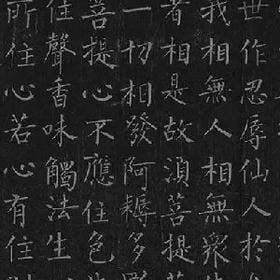 世作忍辱仙人於
我相無人相無衆
者相是故須菩提
一切相發阿耨多
菩提心不應住色
住聲香味觸法生
所住心若心有住